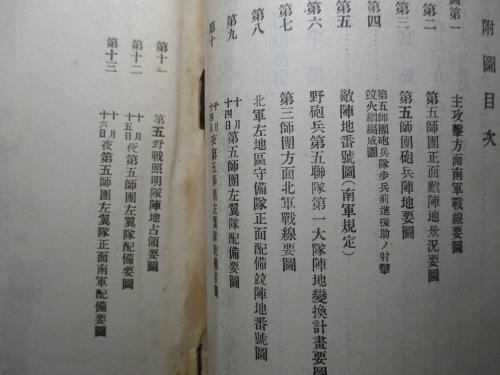 附圖目次
圖第一 主攻擊方面南軍戰線要圖
第二 第五師團正面敵陣地景況要圖
第三 第五師團砲兵陣地要圖
第四 第五師團砲兵隊步兵前進援助ノ射擊
竝火網編成圖
第五 敵陣地番號圖(南軍規定)
第六 野砲兵第五聯隊第一大隊陣地變換計畫要圖
第七 第三師團方面北軍戰線要圖
第八 北軍左地區守備隊正面配備竝陣地番號圖
第九 十月十四日第五師團左翼隊配備要圖
第十 十月十四日夜第五師團左翼隊配備要圖
第十一 第五野戰照明隊陣地占領要圖
第十二 十月十五日夜第五師團左翼隊配備要圖
第十三 十月十六日夜第五師團左翼隊正面南軍配備要圖